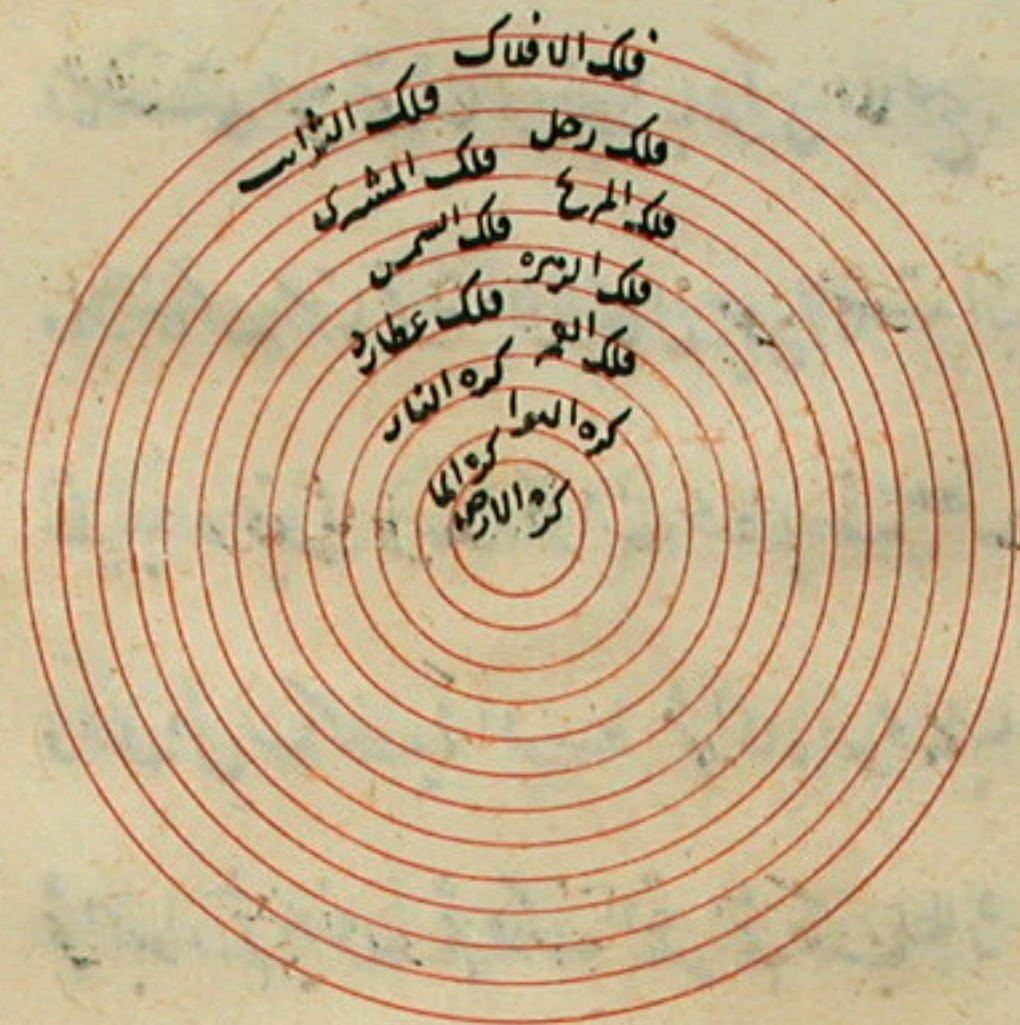 فلك الافلاك
فلك الثوابت
فلك زحل
فلك المشترى
فلك المريخ
فلك الشمس
فلك الزهره
فلك عطارد
فلك القمر
كره النار
كره الهوا
كره الما
كره الارض